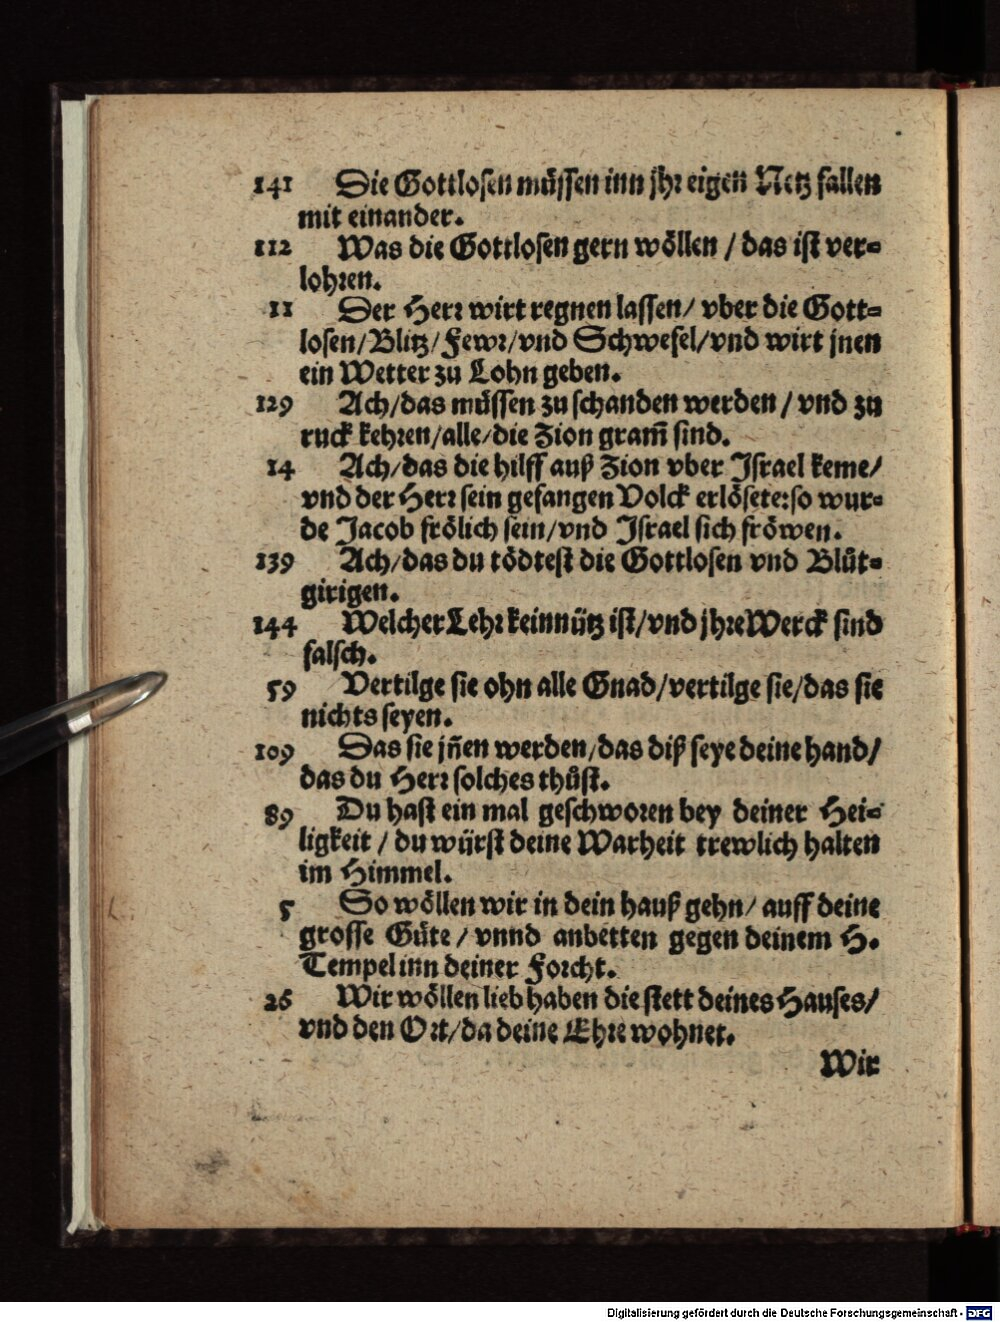 141 Die Gottlosen müssen inn jhr eigen Netz fallen
mit einander.
112 Was die Gottlosen gern wöllen / das ist ver-
lohren.
11 Der Herr wirt regnen lassen/ vber die Gott-
losen/Blitz/Fewr/vnd Schwefel/vnd wirt jnen
ein Wetter zu Lohn geben.
129 Ach/das müssen zu schanden werden / vnd zu
ruck kehren/alle/die Zion gram̃ sind.
14 Ach/das die hilff auß Zion vber Israel keme/
vnd der Herr sein gefangen Volck erlösete:so wur-
de Jacob frölich sein/vnd Israel sich fröwen.
139 Ach/das du tödtest die Gottlosen vnd Blůt-
girigen.
144 Welcher Lehr kein nütz ist/vnd jhre Werck sind
falsch.
59 Vertilge sie ohn alle Gnad/vertilge sie/das sie
nichts seyen.
109 Das sie jñen werden/das diß seye deine hand/
das du Herr solches thůst.
89 Du hast ein mal geschworen bey deiner Hei-
ligkeit / du würst deine Warheit trewlich halten
im Himmel.
5 So wöllen wir in dein hauß gehn/ auff deine
grosse Güte / vnnd anbetten gegen deinem H.
Tempel inn deiner Forcht.
26 Wir wöllen lieb haben die stett deines Hauses/
vnd den Ort/da deine Ehre wohnet.
Wir
Digitalisierung gefördert durch die Deutsche Forschungsgemeinschaft - DFG